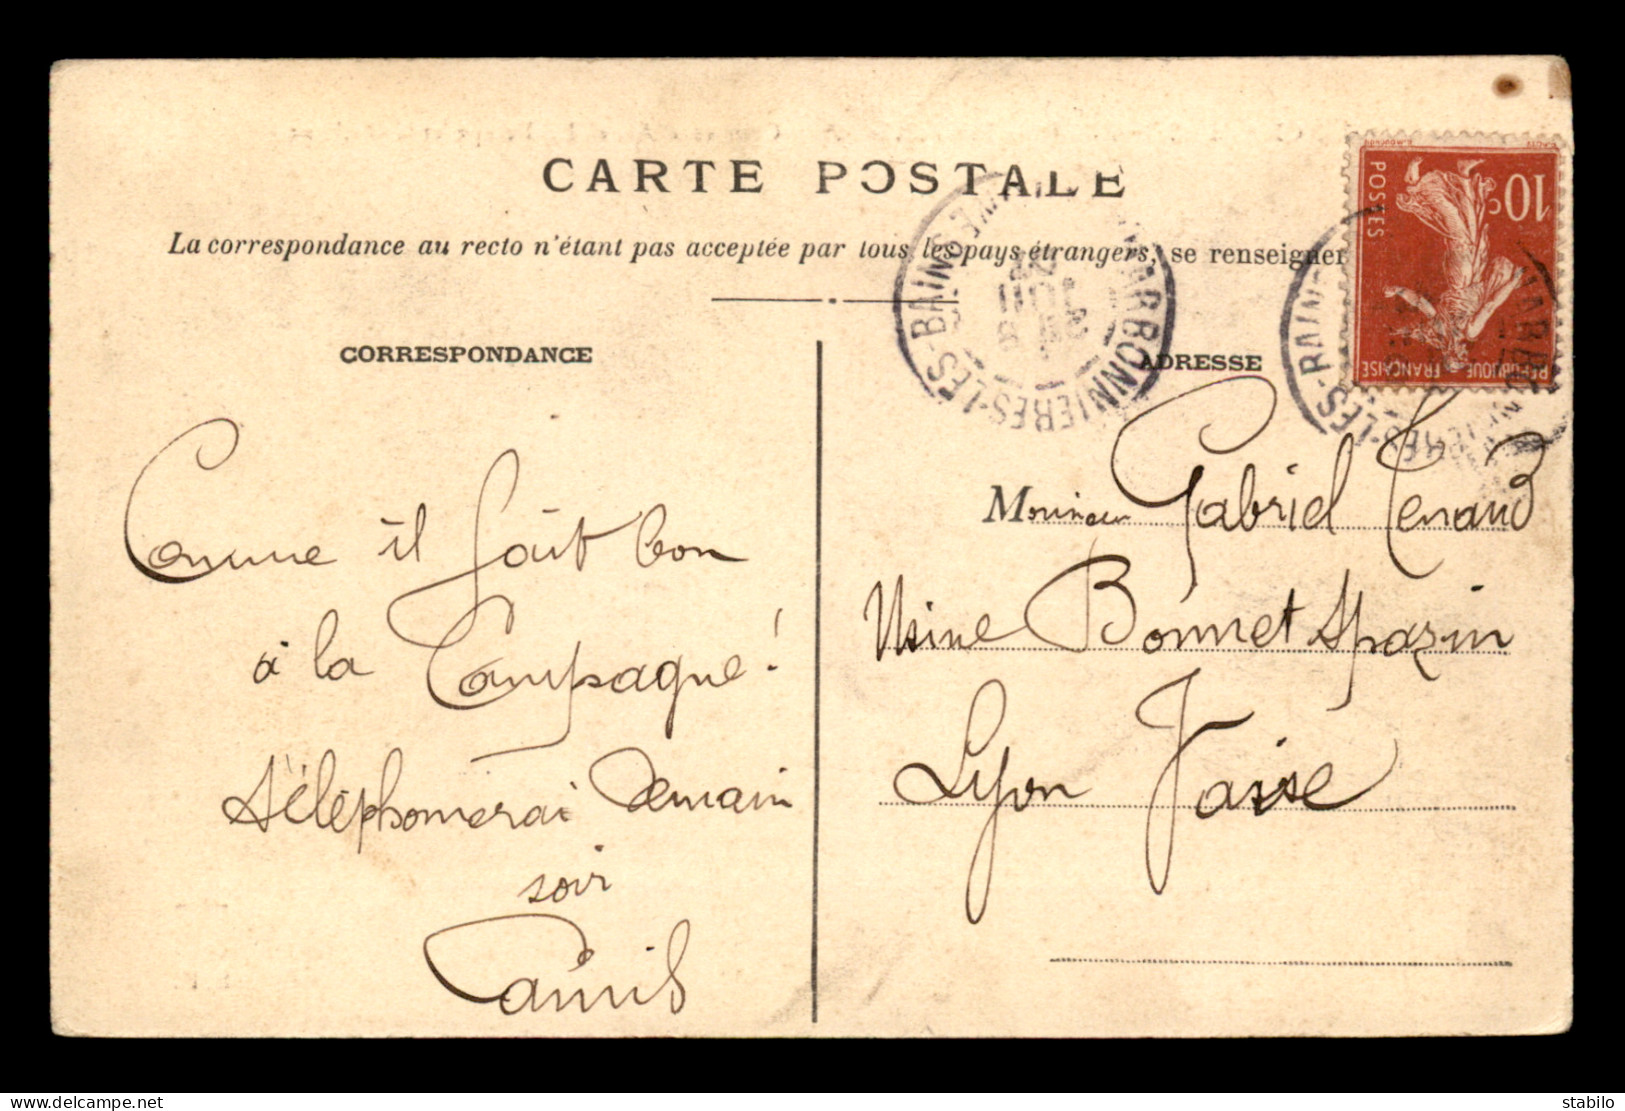 CARTE POSTALE
La correspondance au recto n'étant pas acceptée par tous les pays étrangers, se renseigner
CORRESPONDANCE
ADRESSE
CHARBONNIERES-LES-BAINS
POSTES
10c
REPUBLIQUE FRANÇAISE
Comme il fait bon
à la Campagne!
téléphonerai demain
soir
Camil
Monsieur Gabriel Tenaud
Usine Bonnet Spazin
Lyon Vaise
delcampe.net
stabilo